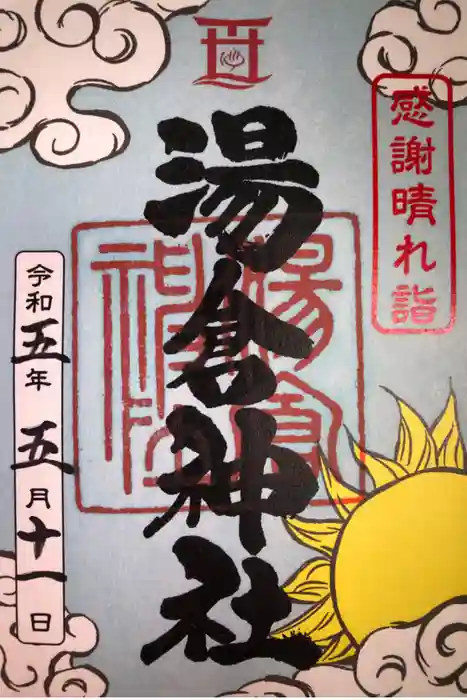 感謝晴れ詣
湯倉神社
湯倉神社
令和五年五月十一日